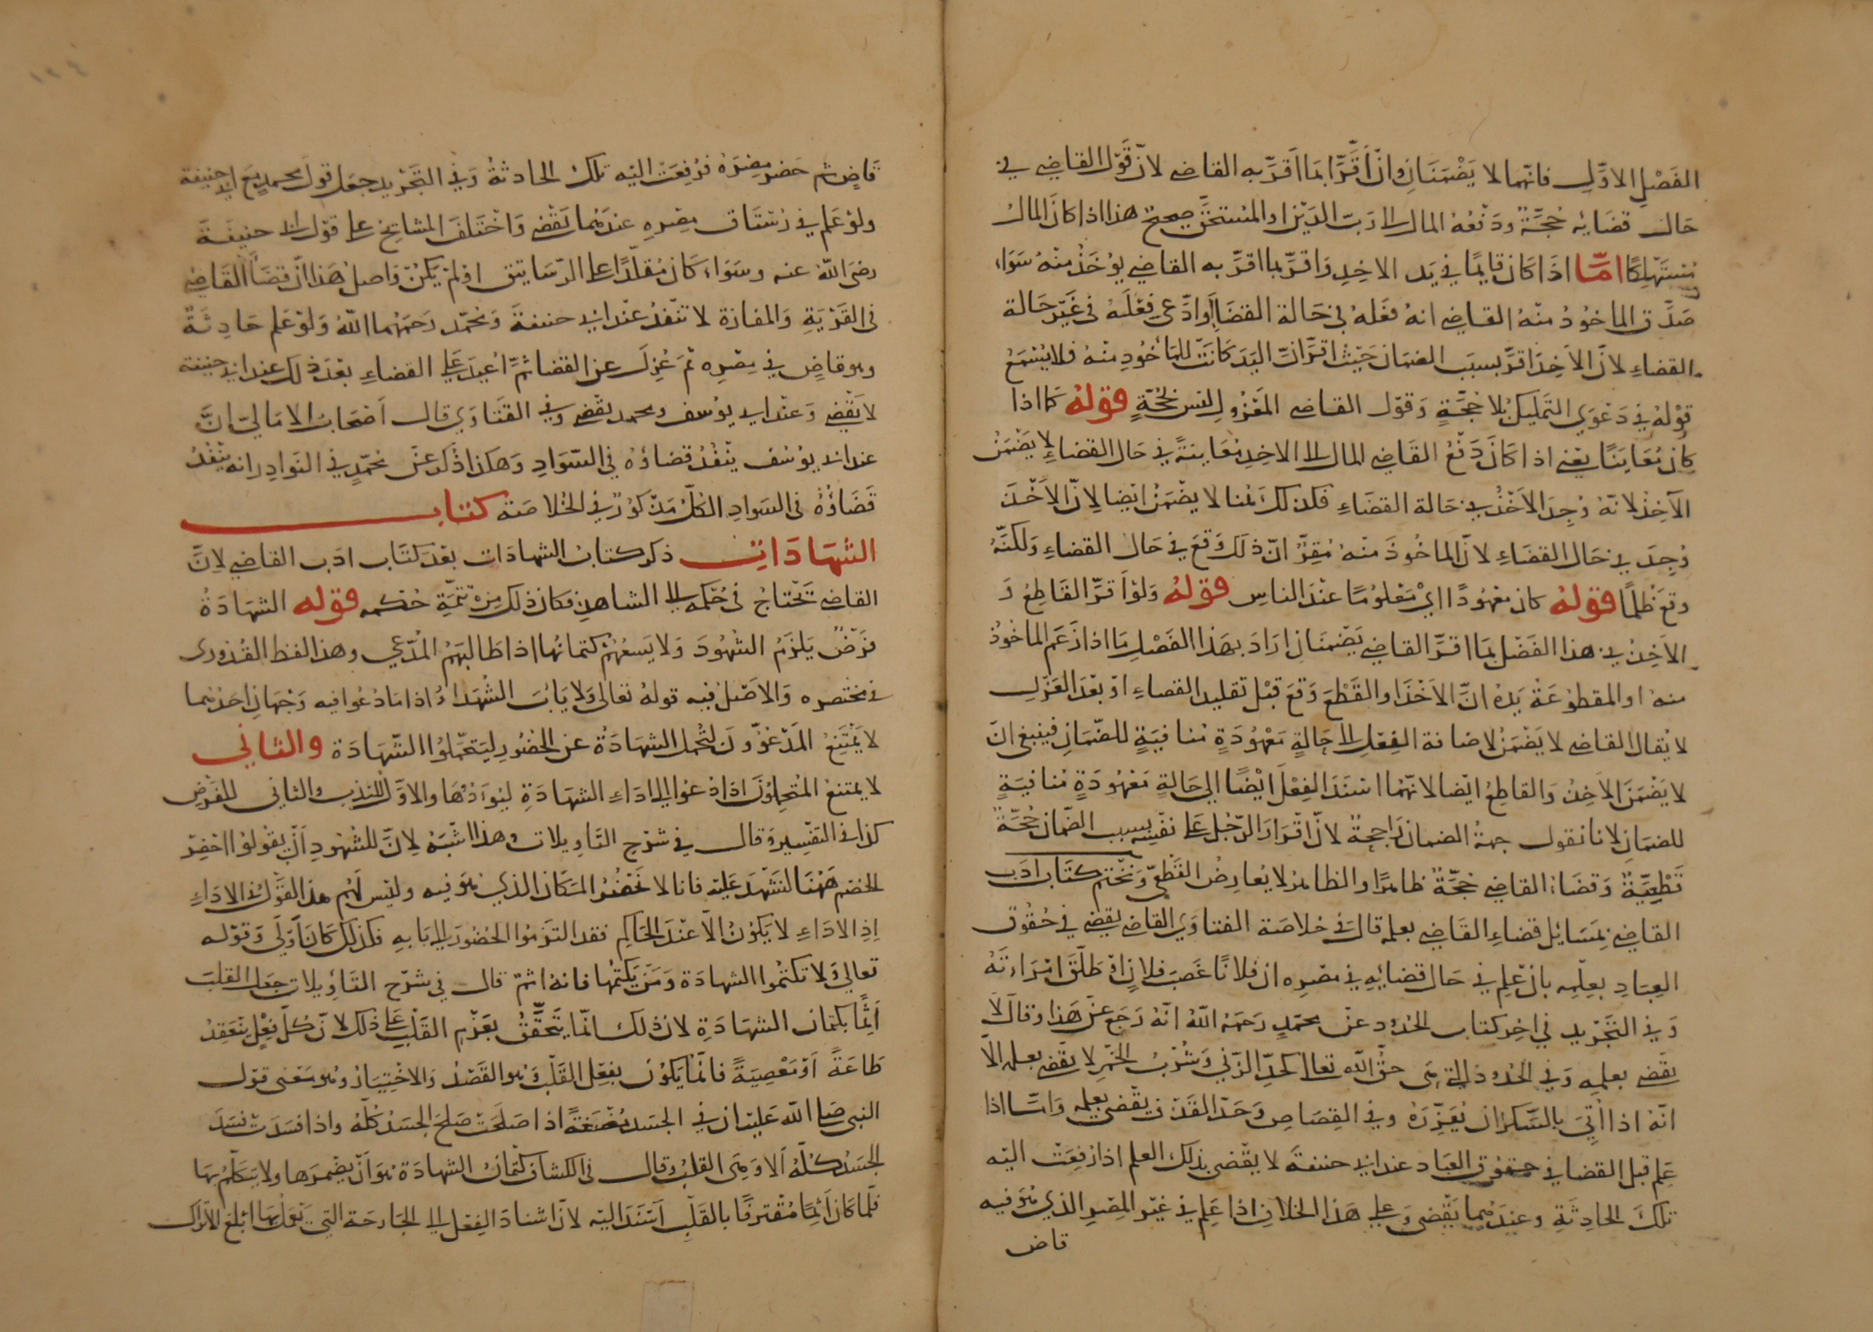 الفَصْلِ الاوَّلِ فانّهما لا يَضْمَنَانِ وانْ اَقَرَّا بمَا اَقَرَّ بهِ القاضي لانّ قَوْل القاضي في
حَال قضَايه حُجَّةٌ ودَفْعُه المال الى رَبّ الدَيْن او المُسْتَحَقّ صحيح هذا اذا كانَ المال
مُسْتَهْلِكًا امّا اذا كان قايمًا في يَد الاخِذِ وَاقرّ بما اقرّ به القاضي يوْخَذُ منهُ سَوَاء
صَدَّق الماخُوذُ منهُ القاضي انه فعَلهُ في حَالة القضَاءِ اَوادَّعى فِعْلَهُ في غَيْر حَالة
القضاءِ لانّ الاَخِذَ اقرَّ بسبَب الضمان حَيْثُ اقرَّ انّ اليَدَ كانَتْ للمَاْخُوذِ منهُ فلا يُسْمَعُ
قوْلهُ في دَعْوَي التمليك بلا حُجَّةٍ وَقوْل القاضي المَعْزُول ليس بحُجّةٍ قولهُ كما اذا
كان مُعَايَنًا يعْنى اذا كانَ دَفْعُ القَاضِي المال الى الاخِذِ مُعَاينَةً في حَال القضاءِ لا يَضْمَنُ
الآخِذُ لانّهُ وُجِدَ الاَخْذُ في حَالة القضَاءِ فكذلكَ هُنا لا يضْمَنُ ايضا لانّ الاَخْذَ
وُجِدَ في حَال القضَاءِ لانّ الماخُوذَ منهُ مُقِرٌّ انّ ذلكَ وَقعَ في حَال القضاءِ وَلكنّهُ
وقعَ ظُلمًا قولهُ كان معْهُودًا اىْ مَعْلوُمًا عنْدَ الناسِ قولهُ وَلوْ اَقرَّ القَاطِعُ وَ
الاَخِذُ في هذا الفَصْل بمَا اقرَّ القاضي يَضْمَنَانِ ارَادَ بهَذا الفَصْلِ مَا اذا زَعَم الماخُوذ
منهُ او المقطوعَةُ يَدهُ انَّ الاَخْذَ او القَطْعَ وَقعَ قبْل تقليد القضاءِ اوْ بَعْدَ العَزْل
لا يُقالُ القاضي لا يَضْمَنُ لاضافة الفِعْل الى حَالةٍ مَعْهُودَةٍ مُنافيَةٍ للضّمَانِ فينبغى انّ
لا يَضْمَنَ الاَخِذُ وَالقاطِعُ ايْضا لانّهُمَا اسْنَدَ الفِعْلَ ايْضًا الي حَالةٍ مَعْهُودَةٍ مُنافيَةٍ
للضمَانِ لانا نقول جهةُ الضمان رَاجحةٌ لانّ اقرَارَ الرّجُل على نفْسِهِ بسبب الضّمان حُجَّةٌ
قَطْعِيَّةٌ وَقضَاءُ القاضي حُجَّةٌ ظاهرًا والظاهرُ لا يُعارِضُ القَطْعىّ وَنخْتِم كتَابَ ادَب
القاضي بمَسَايل قضَاءِ القَاضي بعلمه قال في خلاصَة الفتاوَي القاضي يقضي في حُقُوق
العِبَادِ بعِلْمِه بانْ عَلِم في حَال قضايه في مصْرِه ان فلانًا غصَبَ فلانٍ اوْ طَلّقَ امْرَاَتَهُ
وَفي التجْرِيد في اخِر كتاب الحُدود عنْ محمّدٍ رَحمَهُ اللّهُ انّهُ رَجعَ عنْ هَذا وَقالَ لا
يقضي بعلمِه وَفي الحُدُود التى هَى حَقُّ اللّه تعالى كحدّ الزّنى وَشُرْبُ الخَمْرِ لا يقضي بعلمه الاّ
انّهُ اذا اُتِيَ بالسّكرَان يُعَزِّرَهُ وفي القِصَاصِ وَحَدّ القَذْف يقْضي بعِلمِه وَامّا اذا
عَلِم قبل القضا في حقوق العبَاد عند ابى حنيفةَ لا يقْضى بذلك العلم اذا رُفِعَتْ اليه
تلكَ الحادِثَةِ وعنِدَهُما يَقْضى وَعلى هَذا الخلاف اذا عَلِم في غيْر المِصْرِ الذي هُوَ فيه
قاض
قَاضٍ ثم حَضَرَ مِصْرَهُ فرُفِعَتْ اليْه تلك الحادثةُ وَفي التَّجْريد جعَل قوْل محمدٍ مَعَ ابى حنيفة
ولوْ عَلم في رُسْتَاقِ مِصْرِه عندَهُما يَقْضي وَاخْتَلفَ المشايخ على قوْل ابى حنيفَةَ
رضىَ اللّهُ عنه وسَوَاء كانَ مُقلّدًا على الرّسَاتيق اوْ لمْ يَكنْ وَاصلُ هَذا انّ قضَاءَ القَاضِي
فى القَرْيَةِ وَالمفازة لا تنْفذُ عنْدَ ابى حنيفةَ وَمحمّد رَحمَهُما اللّهُ وَلوْ عَلم حَادِثَةً
وهو قاضٍ في مِصْرِه ثمَ عُزِلَ عن القضا ثمّ اُعيدَ عَلى القضاءِ بعْدَ ذلكَ عند ابى حنيفة
لا يَقْضي وَعنْد ابى يوُسف ومحمد يقْضي وفي الفَتاوَي قال اَصْحابُ الامَالىّ انّ
عند ابى يوُسُف ينْفُذُ قضاؤُهُ في السّوَادِ وَهَكذا ذكرَ عنْ محمّدٍ في النوَادِر انه ينْفُذُ
قَضَاؤُهُ فى السَوادِ الكُلُّ مَذْكوُرٌ في الخلاصَة كتاب
الشهَادَات ذكر كتابَ الشهادَات بعْدَ كتَاب ادَب القاضي لانَّ
القاضي تَحْتاجُ فى حُكمِه الى الشاهدِ فكان ذلك مِنْ تتمّةِ حُكمِه قولهُ الشهَادَةُ
فرْضٌ يَلزَمُ الشهُودَ وَلا يَسعُهُمْ كتمانُها اذا طَالبَهُم المُدّعِي وهذا لفظ القُدُورى
في مختصره وَالاصْلُ فيه قولهُ تعالى وَلا يَابَ الشُهَداءُ اذا مَا دُعُوا فيه وَجْهَانِ احَدُهما
لا يَمْتَنِعُ المَدْعُوّونَ لتُحمل الشهَادَةُ عن الحُضُورِ ليَتَحَمّلُوا الشّهَادَة والثاني
لا يمتنعُ المُتحمّلوُنَ اذا دُعوُا الى ادَاءِ الشهَادَةِ ليُوَدُّهَا والاوّلُ للنَدبِ والثانى للفَرْضِ
كذا في التفسِيرِ وَقال في شرْحِ التّاوِيلات وهذا اَشْبَهُ لانّ للشُهُودِ اَنْ يقوُلوُا احْضِرْ
الخَصْم هَهُنَا لنَشْهَدَ عَليْه فانا لا نَحْضُرُ المَكان الذي هوَ فيه وليْس لهُم هذا القوْلُ في الادَاءِ
اِذِ الادَاءِ لا يَكوُنُ الّا عنْدَ الحَاكِم فقد التَزَمُوا الحُضُورَ الى بَابِهِ فكذلك كانَ اَوْلَى وَقوْله
تعالي وَلا تكتُموُا الشهادَة وَمَنْ يَكتُمْهَا فانهُ اثمٌ قال في شرْح التاوِيلات جعَلَ القلبَ
اَثِمًا بكتمان الشهَادَةِ لان ذلك انّما يَتَحَقّقُ بعَزْم القَلْبِ عَلى ذلكَ لانّ كلّ فِعْلٍ يَنْعَقِدُ
طَاعَةً اَوْ مَعْصِيَةً فانّما يَكوُنُ بفِعْل القَلْبِ وَهو القَصْدُ وَالاخْتِيَارُ وهُو مَعْنى قول
النبى صلى اللّه عَليْه ان في الجسَد مُضْغَةً اذا صَلحَتْ صَلحَ الجسَدُ كلّهُ واذا فسَدَت فسَدَ
الجسَدُ كلّهُ اَلا وَهَى القلبُ وقال فى الكشاف كتمَانُ الشهادَة هُوَ اَنْ يضْمِرَها ولا يتكلّمُ بهَا
فلمّا كانَ اثِمًا مُقْترَفًا بالقَلْبِ اَسْنَدَ اليْه لانّ اسْنادَ الفِعْل الى الجارحَة التي يعْمَلُ بهَا ابْلغ الاترَاك